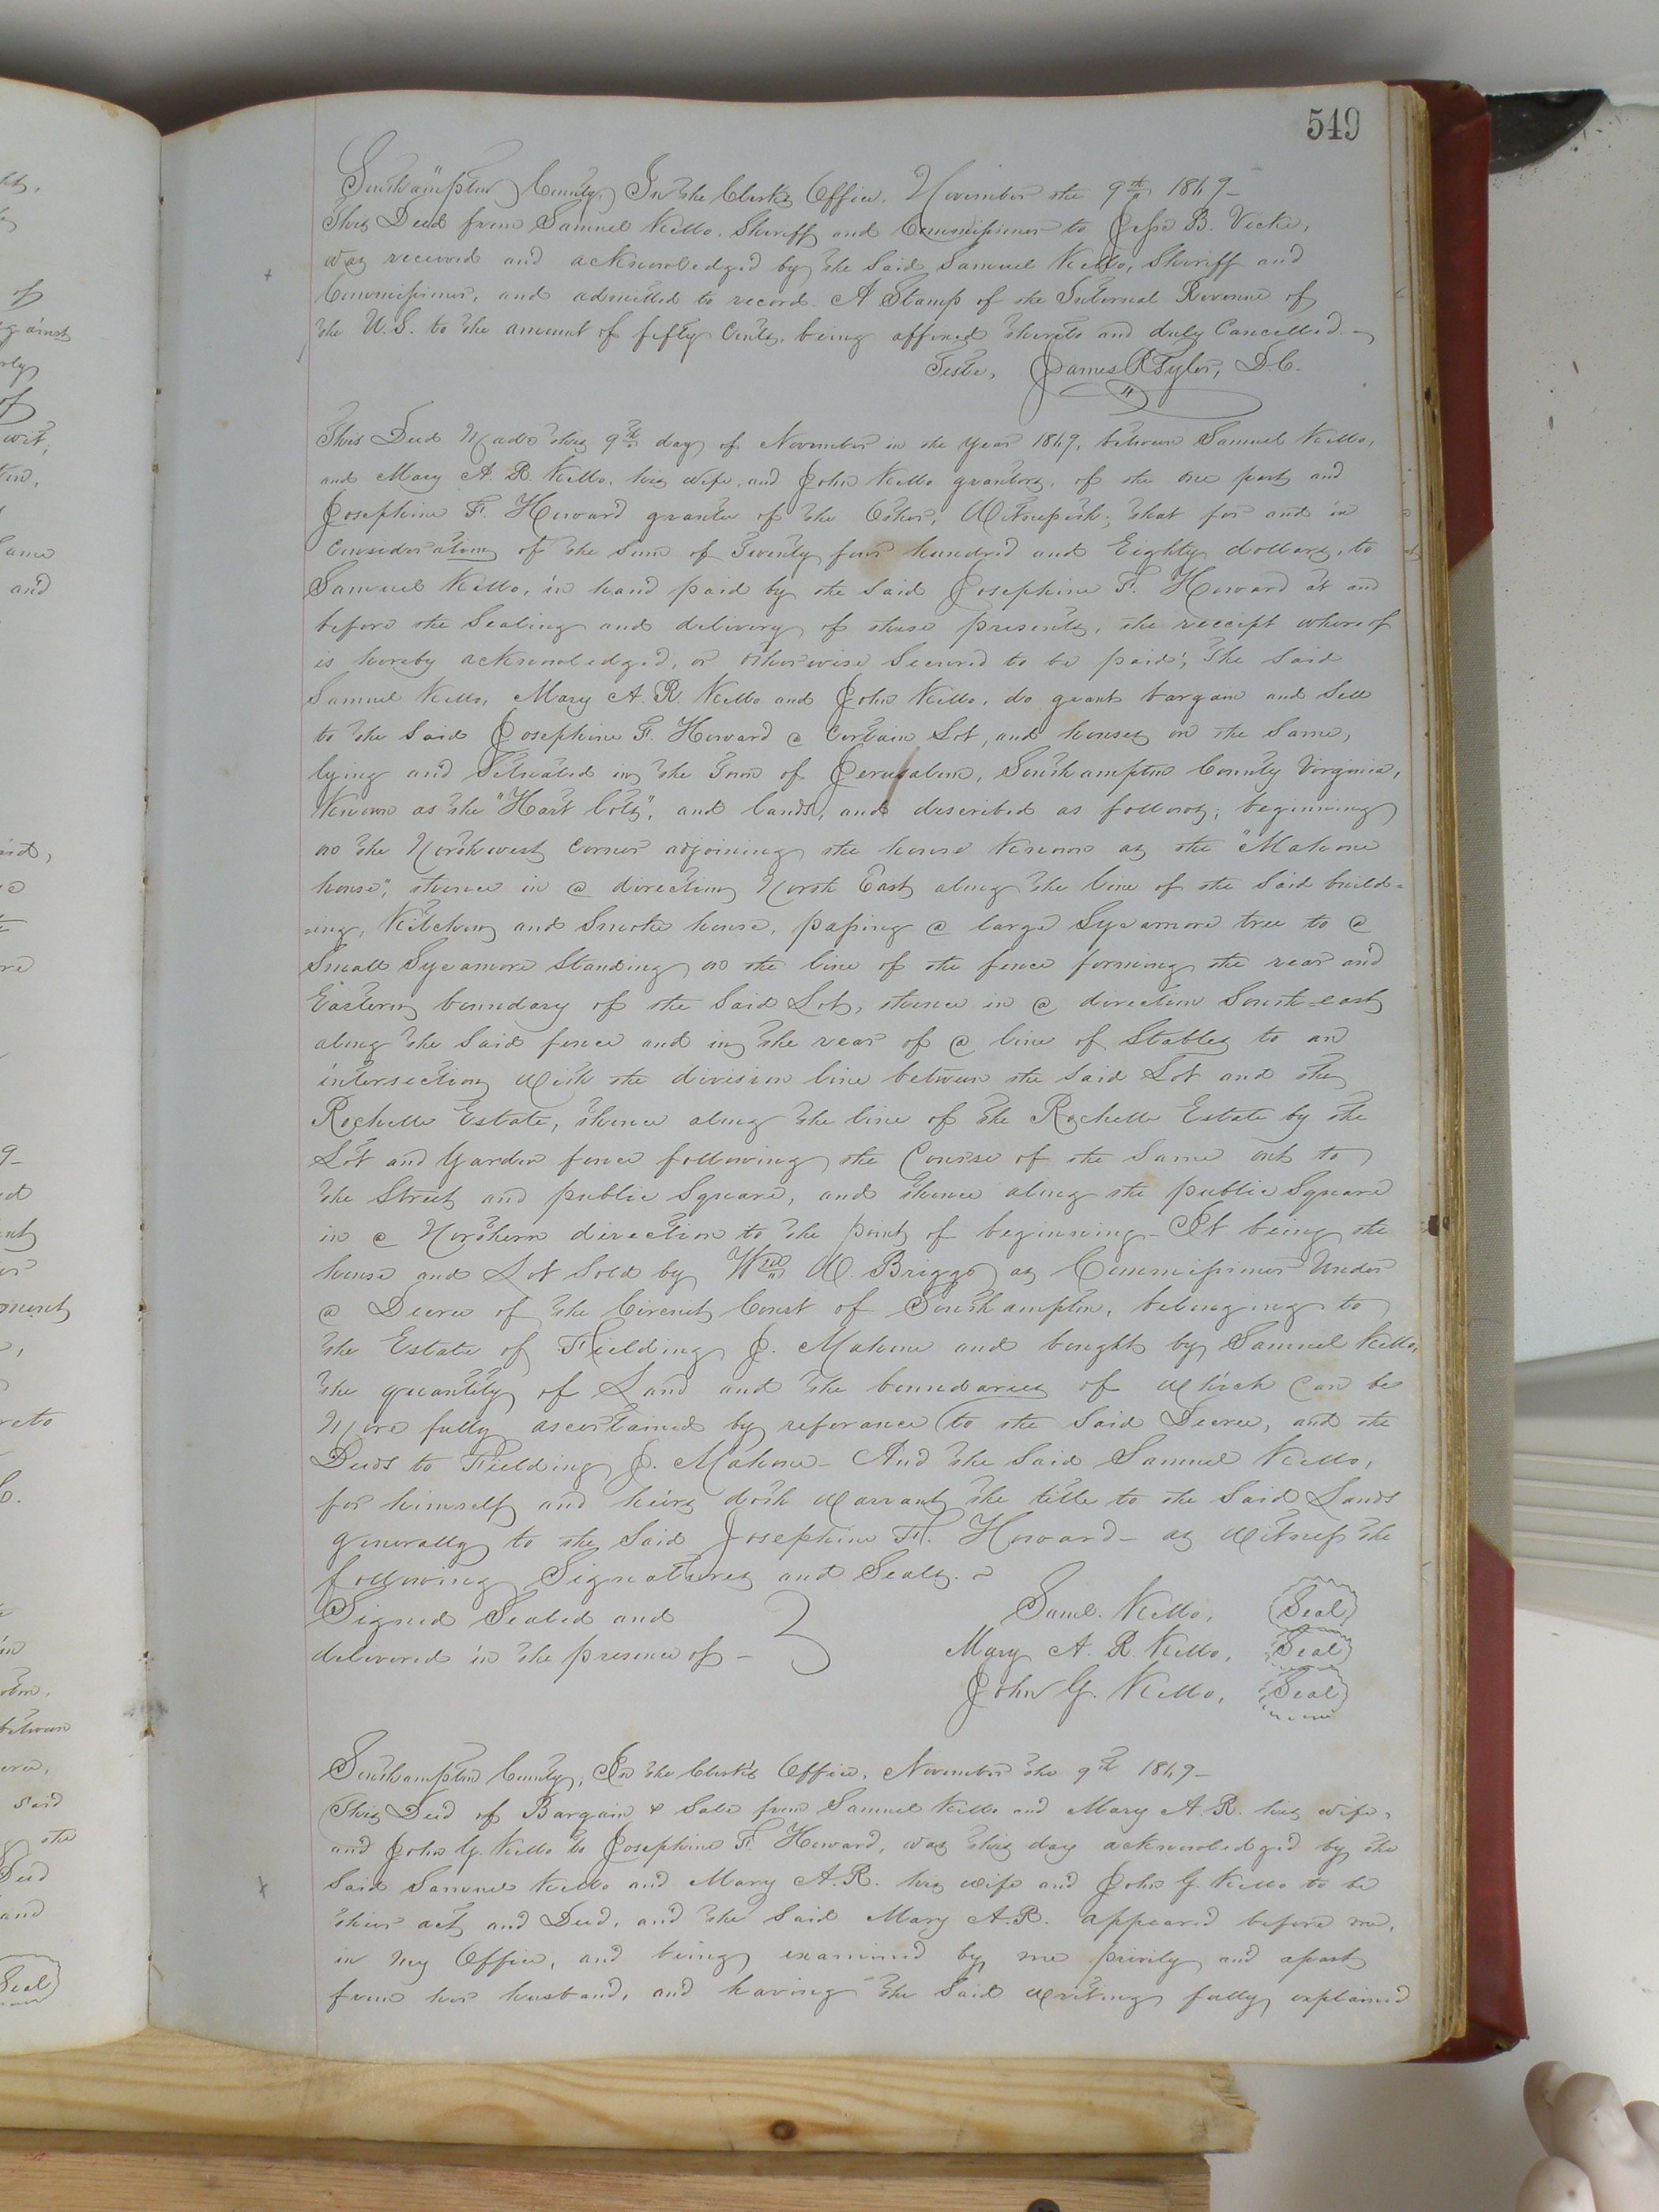 549
Southampton County, In the Clerk's Office, November the 9th 1869-
This Deed from Samuel Kello, Sheriff and Commissioner to Jesse B. Vick,
was received and acknowledged by the said Samuel Kello, Sheriff and
Commissioner, and admitted to record. A Stamp of the Internal Revenue of
the U.S. to the amount of fifty Cents, being affixed thereto and duly Cancelled.-
Teste, James R Tyler, D.C.
This Deed Made this 9th day of November in the year 1869, between Samuel Kello,
and Mary A. R. Kello, his wife, and John Kello grantors, of the one part and
Josephine F. Howard grantee of the Other, Witnesseth; that for and in
Consideration of the sum of Twenty four hundred and Eighty dollars, to
Samuel Kello, in hand paid by the said Josephine F. Howard at and
before the Sealing and delivery of these presents, the receipt whereof
is hereby acknowledged, or otherwise Secured to be paid; The said
Samuel Kello, Mary A. R. Kello and John Kello, do grant bargain and Sell
to the said Josephine F. Howard a Certain Lot, and houses on the Same,
lying and Situated in the Town of Jerusalem, Southampton County Virginia,
Known as the "Hart Lots", and lands, and described as follows; beginning
on the Northwest Corner adjoining the house known as the "Mahone
house", thence in a direction North East along the line of the said build=
=ing, Kitchen and Smoke house, passing a large Sycamore tree to a
Small Sycamore Standing on the line of the fence forming the rear and
Eastern boundary of the said Lot, thence in a direction South=east
along the said fence and in the rear of a line of Stables to an
intersection with the division line between the said Lot and the
Rochelle Estate, thence along the line of the Rochelle Estate by the
Lot and Garden fence following the Course of the Same out to
the Street and public Square, and thence along the public Square
in a Northern direction to the point of beginning- It being the
house and Lot Sold by Wm W. Briggs as Commissioner Under
a Decree of the Circuit Court of Southampton, belonging to
the Estate of Fielding J. Mahone and bought by Samuel Kello,
the quantity of Land and the boundaries of which Can be
More fully ascertained by referance to the said Decree, and the
Deeds to Fielding J. Mahone- And the said Samuel Kello,
for himself and heirs doth warrant the title to the said Lands
generally to the said Josephine F. Howard- as witness the
following Signatures and Seals.-
Signed Sealed and
delivered in the presence of -
Saml. Kello, Seal
Mary A. R. Kello, Seal
John G. Kello, Seal
Southampton County, In the Clerk's Office, November the 9th 1869-
This Deed of Bargain & Sale from Samuel Kello and Mary A. R. his wife,
and John G. Kello to Josephine F. Howard, was this day acknowledged by the
said Samuel Kello and Mary A.R. his wife and John G. Kello to be
their act and Deed, and the said Mary A.R. appeared before me,
in my Office, and being examined by me privily and apart
from her husband, and having the said writing fully explained